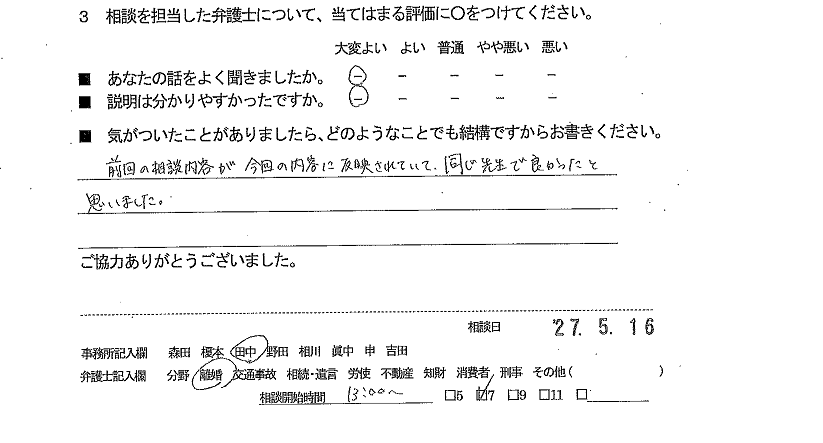 3 相談を担当した弁護士について、当てはまる評価に〇をつけてください。
大変よい よい 普通 やや悪い 悪い
■ あなたの話をよく聞きましたか。 － － － － －
■ 説明は分かりやすかったですか。 － － － － －
■ 気がついたことがありましたら、どのようなことでも結構ですからお書きください。
前回の相談内容が今回の内容に反映されていて、同じ先生で良かったと
思いました。
ご協力ありがとうございました。
相談日 '27. 5. 16
事務所記入欄 森田 榎本 田中 野田 相川 眞中 申 吉田
弁護士記入欄 分野 離婚 交通事故 相続・遺言 労使 不動産 知財 消費者 刑事 その他( )
相談開始時間 13:00～ □5 ☑7 □9 □11 □